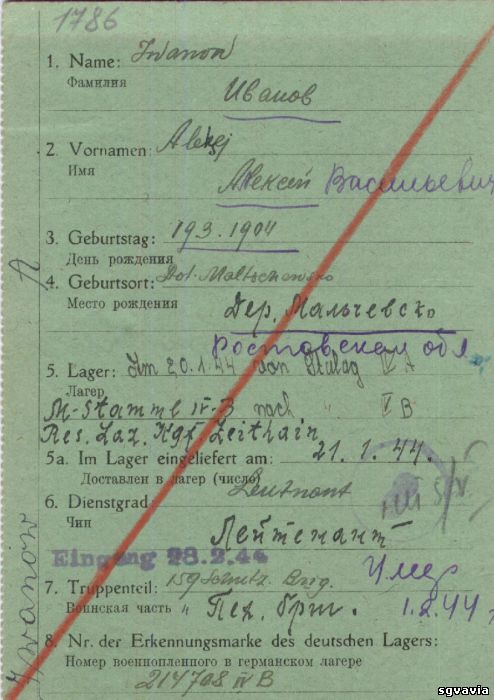 1786
1. Name: Iwanow
Фамилия
Иванов
2. Vornamen: Aleksej
Имя
Алексей Васильевич
3. Geburtstag: 19.3.1904
День рождения
4. Geburtsort: Dorf. Maltschewsko
Место рождения
Дер. Мальчевско
Ростовской обл
5. Lager: Im 20.1.44 von Stalag IV A
Лагер
M-Stamml IV-B nach " IV B
Res. Laz. Kgf Zeithain
5a. Im Lager eingeliefert am: 21.1.44.
Доставлен в лагер (число)
6. Dienstgrad: Leutnant
Чин
Лейтенант
Eingang 28.2.44
Умер
7. Truppenteil: 159 Schütz. Brig.
Воинская часть " Пех. бриг. 1.2.44
8. Nr. der Erkennungsmarke des deutschen Lagers:
Номер военнопленного в германском лагере
214708 IV B
Iwanow A
sgvavia